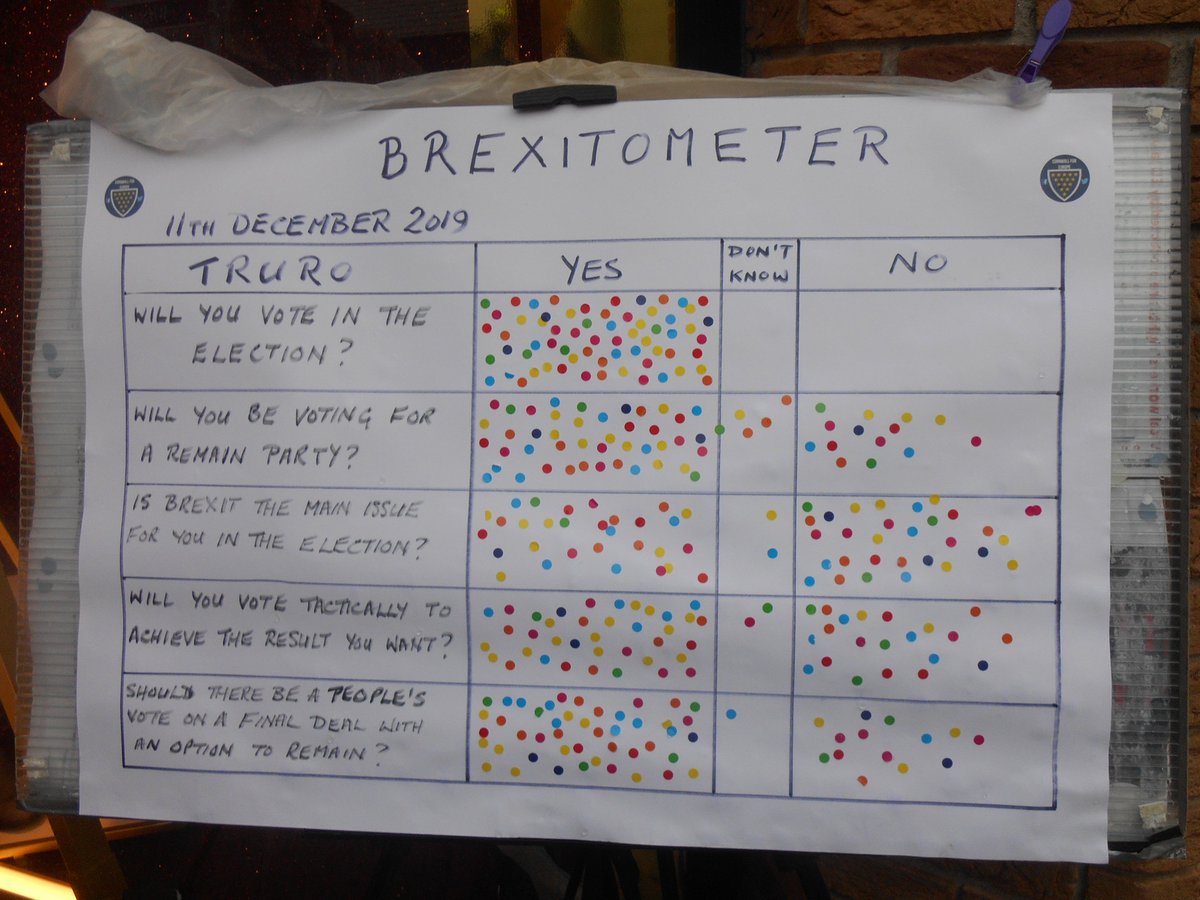 BREXITOMETER
CORNWALL FOR
EUROPE
CORNWALL FOR
EUROPE
11TH DECEMBER 2019
TRURO
YES
DON'T
KNOW
NO
WILL YOU VOTE IN THE
ELECTION?
WILL YOU BE VOTING FOR
A REMAIN PARTY?
IS BREXIT THE MAIN ISSUE
FOR YOU IN THE ELECTION?
WILL YOU VOTE TACTICALLY TO
ACHIEVE THE RESULT YOU WANT?
SHOULD THERE BE A PEOPLE'S
VOTE ON A FINAL DEAL WITH
AN OPTION TO REMAIN?